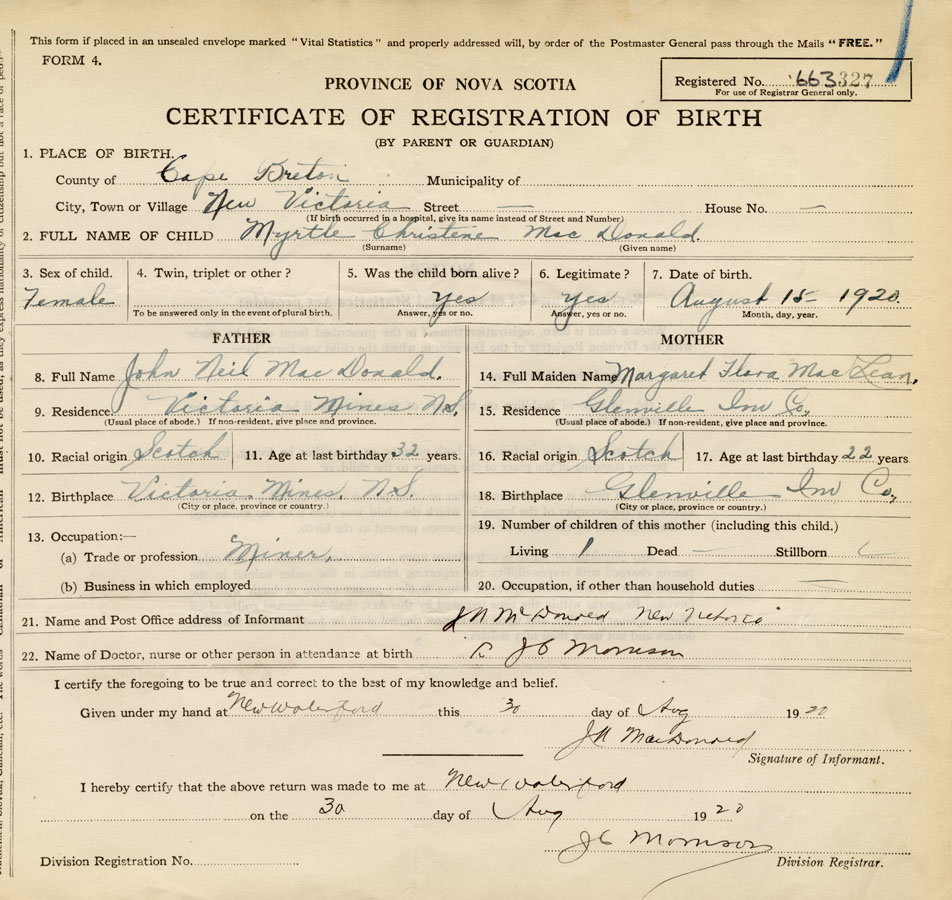 This form if placed in an unsealed envelope marked "Vital Statistics" and properly addressed will, by order of the Postmaster General pass through the Mails "FREE."
FORM 4.
Registered No. 663327
For use of Registrar General only.
PROVINCE OF NOVA SCOTIA
CERTIFICATE OF REGISTRATION OF BIRTH
(BY PARENT OR GUARDIAN)
1. PLACE OF BIRTH.
County of Cape Breton Municipality of
City, Town or Village New Victoria Street — House No. —
(If birth occurred in a hospital, give its name instead of Street and Number)
2. FULL NAME OF CHILD Myrtle Christene Mac Donald.
(Surname) (Given name)
3. Sex of child. 4. Twin, triplet or other? 5. Was the child born alive? 6. Legitimate? 7. Date of birth.
Female yes yes August 15 1920.
To be answered only in the event of plural birth. Answer, yes or no. Answer, yes or no. Month, day, year.
FATHER MOTHER
8. Full Name John Neil Mac Donald. 14. Full Maiden Name Margaret Flora Mac Lean.
9. Residence Victoria Mines N.S. 15. Residence Glenville Inv Co,
(Usual place of abode.) If non-resident, give place and province. (Usual place of abode.) If non-resident, give place and province.
10. Racial origin Scotch 11. Age at last birthday 32 years. 16. Racial origin Scotch 17. Age at last birthday 22 years
12. Birthplace Victoria Mines, N.S. 18. Birthplace Glenville Inv Co,
(City or place, province or country.) (City or place, province or country.)
13. Occupation:— 19. Number of children of this mother (including this child.)
(a) Trade or profession Miner, Living 1 Dead — Stillborn
(b) Business in which employed 20. Occupation, if other than household duties
21. Name and Post Office address of Informant J N McDonald New Victoria
22. Name of Doctor, nurse or other person in attendance at birth J C Morrison
I certify the foregoing to be true and correct to the best of my knowledge and belief.
Given under my hand at New Waterford this 30 day of Aug 1920
J N MacDonald
Signature of Informant.
I hereby certify that the above return was made to me at New Waterford
on the 30 day of Aug 1920
J C Morrison
Division Registration No. Division Registrar.